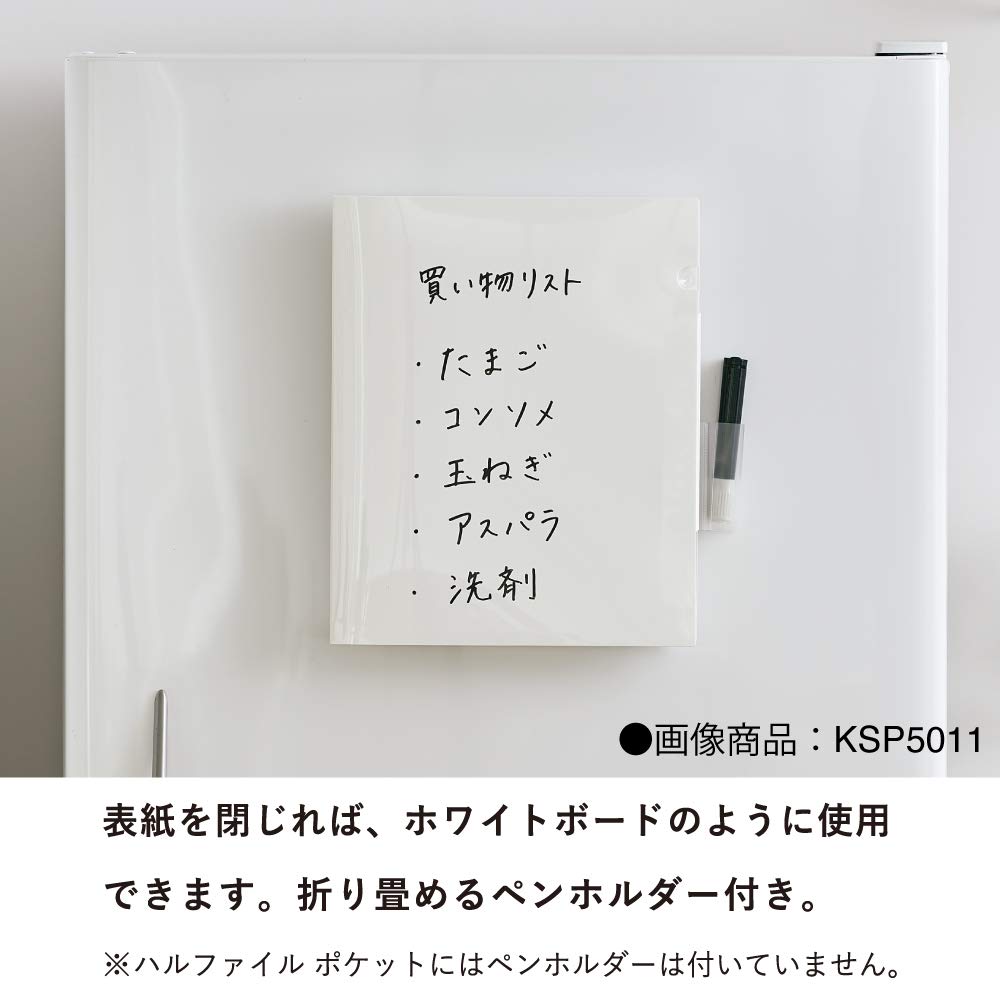 買い物リスト
・たまご
・コンソメ
・玉ねぎ
・アスパラ
・洗剤
●画像商品：KSP5011
表紙を閉じれば、ホワイトボードのように使用
できます。折り畳めるペンホルダー付き。
※ハルファイル ポケットにはペンホルダーは付いていません。